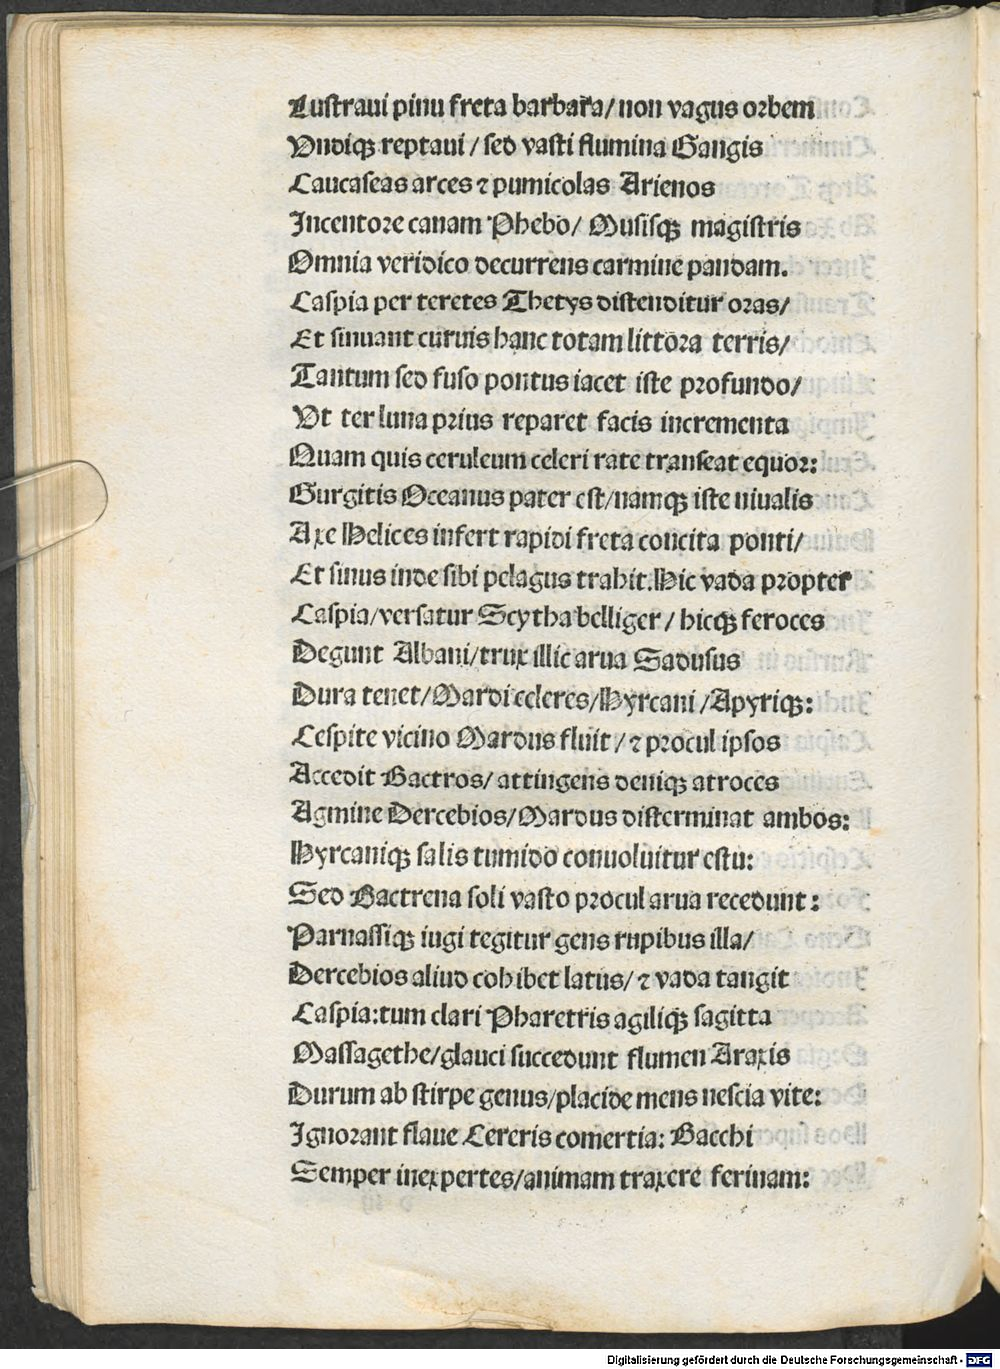 Lustraui pinu freta barbara/non vagus orbem
Vndiqꝫ reptaui / sed vasti flumina Gangis
Caucaseas arces ⁊ pumicolas Arienos
Incentore canam Phebo/ Musisqꝫ magistris
Omnia veridico decurrens carmine pandam.
Caspia per teretes Thetys distenditur oras/
Et sinuant curuis hanc totam littora terris/
Tantum sed fuso pontus iacet iste profundo/
Vt ter luna prius reparet facis incrementa
Quam quis ceruleum celeri rate transeat equor:
Gurgitis Oceanus pater est/namqꝫ iste niualis
Axe Helices infert rapidi freta concita ponti/
Et sinus inde sibi pelagus trahit. Hic vada propter
Caspia/versatur Scytha belliger / hicqꝫ feroces
Degunt Albani/trux illic arua Sadusus
Dura tenet/Mardi celeres/Hyrcani /Apyriqꝫ:
Cespite vicino Mardus fluit / ⁊ procul ipsos
Accedit Bactros/ attingens deniqꝫ atroces
Agmine Dercebios/Mardus disterminat ambos:
Hyrcaniqꝫ salis tumido conuoluitur estu:
Sed Bactrena soli vasto procul arua recedunt :
Parnassiqꝫ iugi tegitur gens rupibus illa/
Dercebios aliud cohibet latus/ ⁊ vada tangit
Caspia:tum clari Pharetris agiliqꝫ sagitta
Massagethe/glauci succedunt flumen Araxis
Durum ab stirpe genus/placide mens nescia vite:
Ignorant flaue Cereris comertia: Bacchi
Semper inexpertes/animam traxere ferinam:
Digitalisierung gefördert durch die Deutsche Forschungsgemeinschaft - DFG